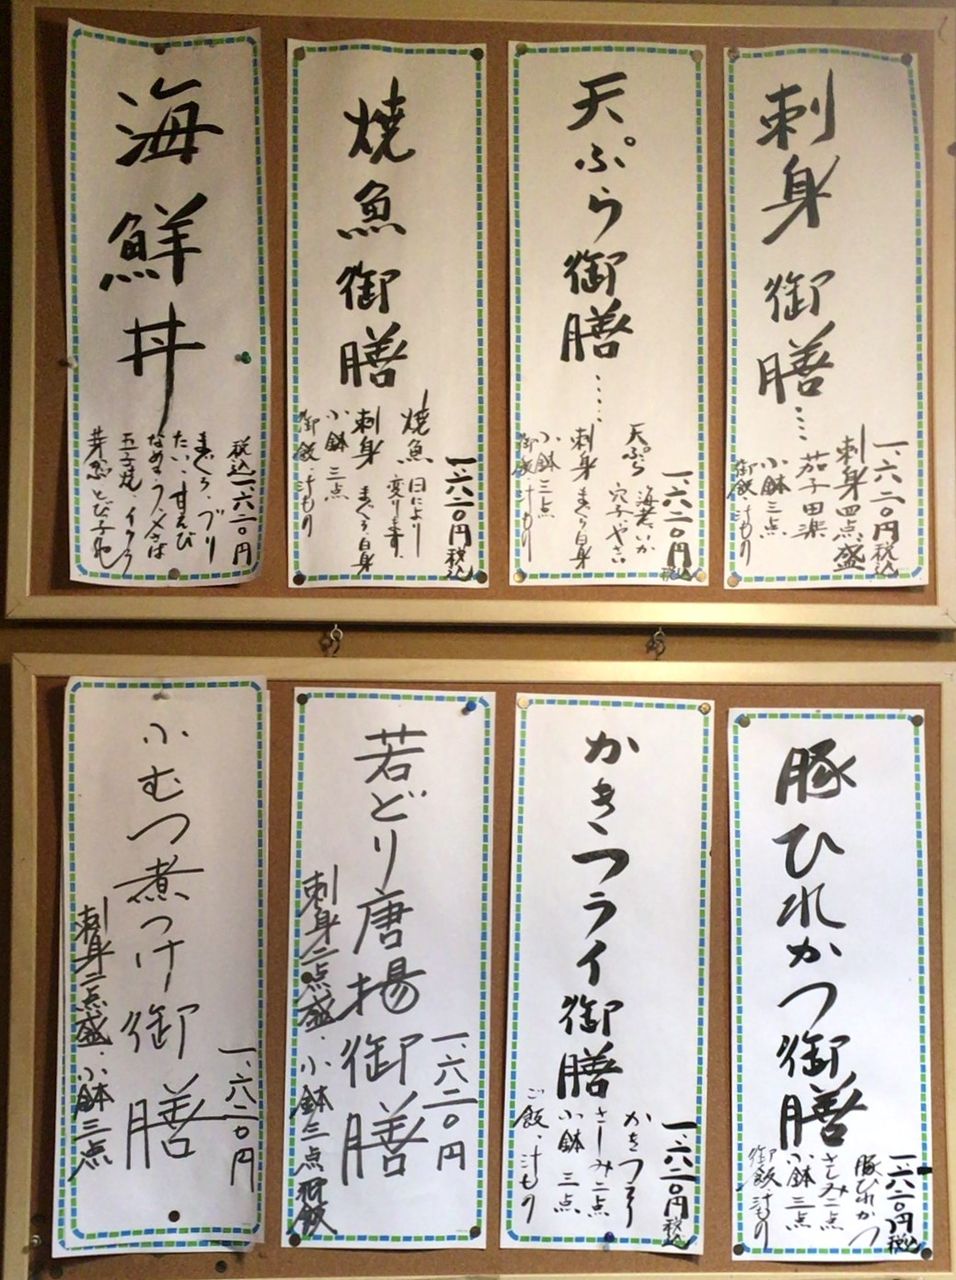 刺身御膳…
一、六二〇円税込
刺身四点盛
茄子田楽
小鉢三点
御飯、汁もり
天ぷら御膳……
一、六二〇円税込
天ぷら 海老、いか
穴子、やさい
刺身 まぐろ、白身
小鉢三点
御飯、汁もり
焼魚御膳
一、六二〇円税込
焼魚 日により
変ります。
刺身 まぐろ、白身
小鉢 三点
御飯、汁もり
海鮮丼
税込一、六二〇円
まぐろ、ブリ
たい、甘えび
なめろう、〆さば
玉子焼、イクラ
芽ねぎ とび子
豚ひれかつ御膳
一、六二〇円税込
豚ひれかつ
さしみ二点
小鉢三点
御飯 汁もの
かきフライ御膳
一、六二〇円税込
かきフライ
さしみ二点
小鉢 三点
ご飯、汁もの
若どり唐揚御膳
一、六二〇円
刺身二点盛、小鉢三点 御飯
小むつ煮つけ御膳
一、六二〇円
刺身二点盛、小鉢三点